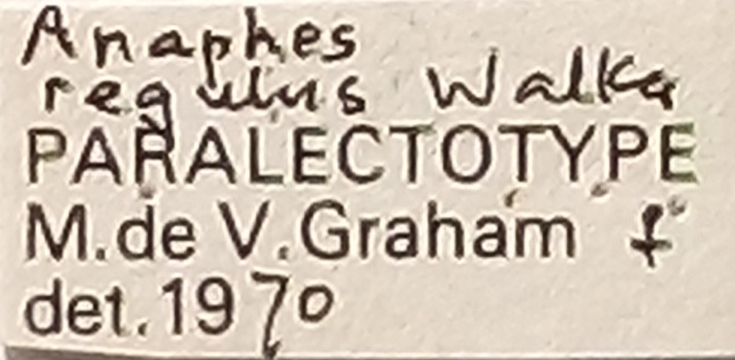 Anaphes
regulus Walker
PARALECTOTYPE
M.de V.Graham f
det.1970